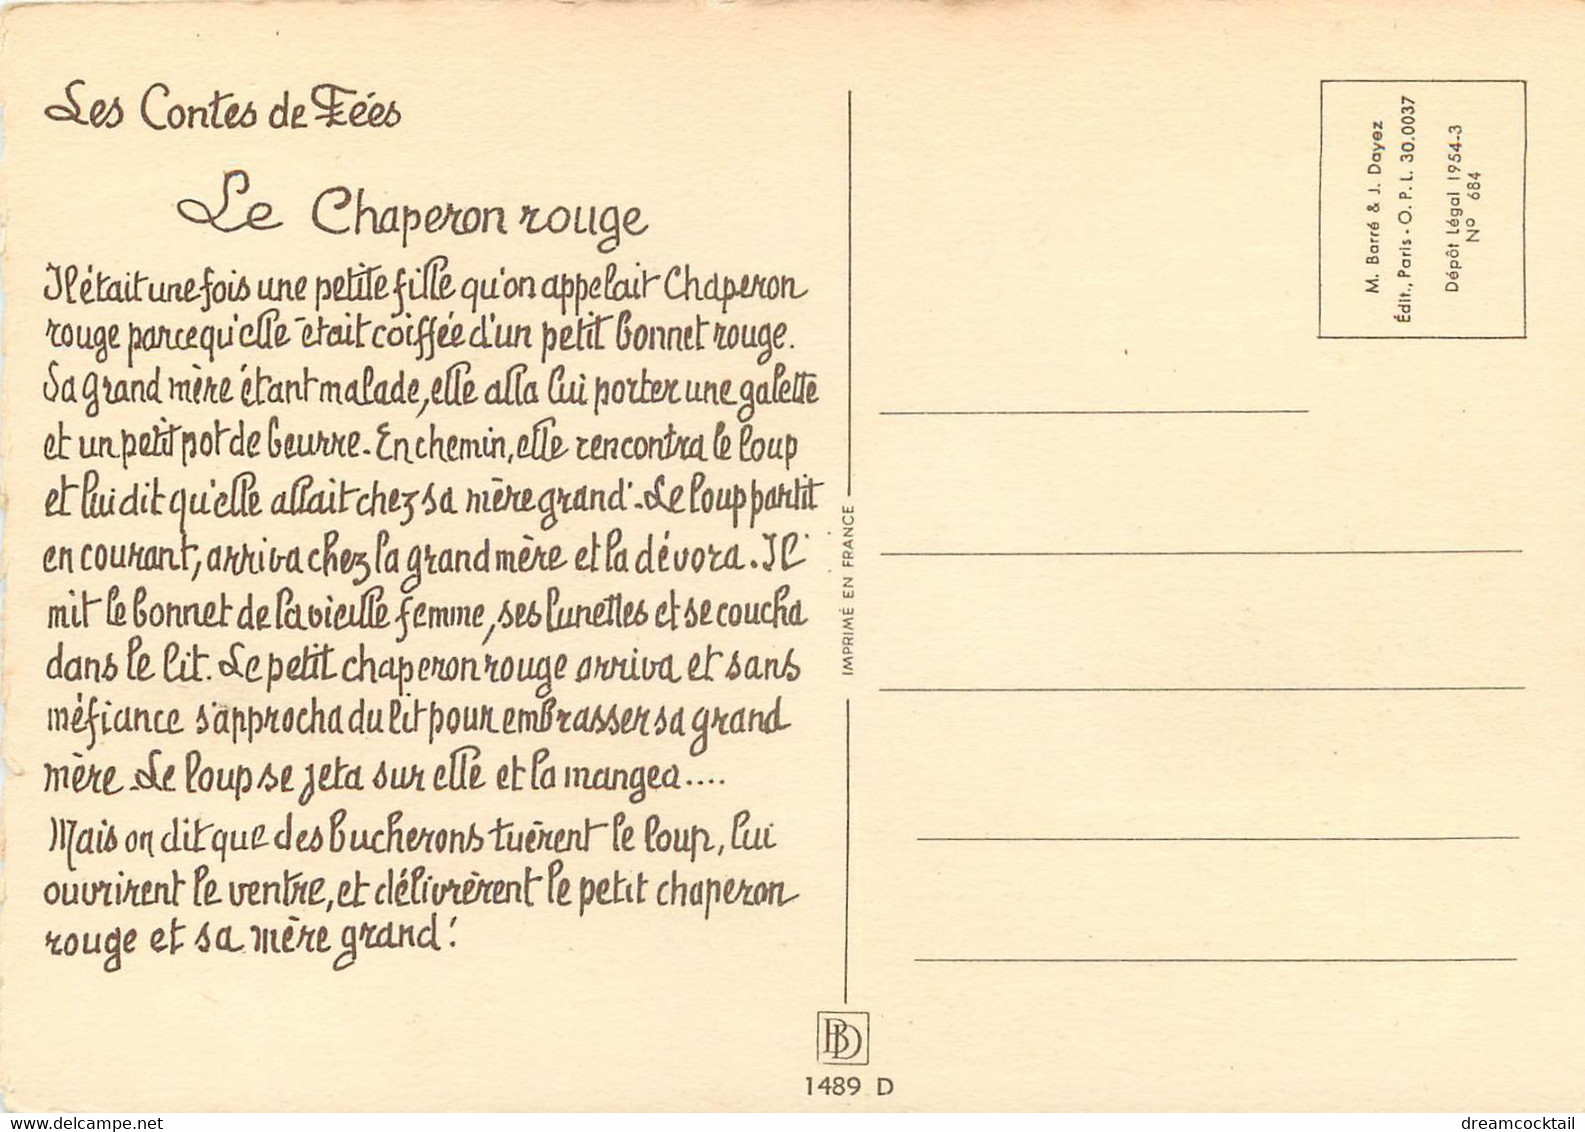 Les Contes de Fées
Le Chaperon rouge
Il était une fois une petite fille qu'on appelait Chaperon
rouge parce qu'elle était coiffée d'un petit bonnet rouge.
Sa grand mère étant malade, elle alla lui porter une galette
et un petit pot de beurre. En chemin, elle rencontra le loup
et lui dit qu'elle allait chez sa mère grand. Le loup partit
en courant, arriva chez la grand mère et la dévora. Il
mit le bonnet de la vieille femme, ses lunettes et se coucha
dans le lit. Le petit chaperon rouge arriva et sans
méfiance s'approcha du lit pour embrasser sa grand
mère. Le loup se jeta sur elle et la mangea....
Mais on dit que des bucherons tuèrent le loup, lui
ouvrirent le ventre, et délivrèrent le petit chaperon
rouge et sa mère grand!
IMPRIMÉ EN FRANCE
M. Barré & J. Dayez
Édit., Paris - O. P. L. 30.0037
Dépôt Légal 1954-3
Nº 684
BD
1489 D
dreamcocktail